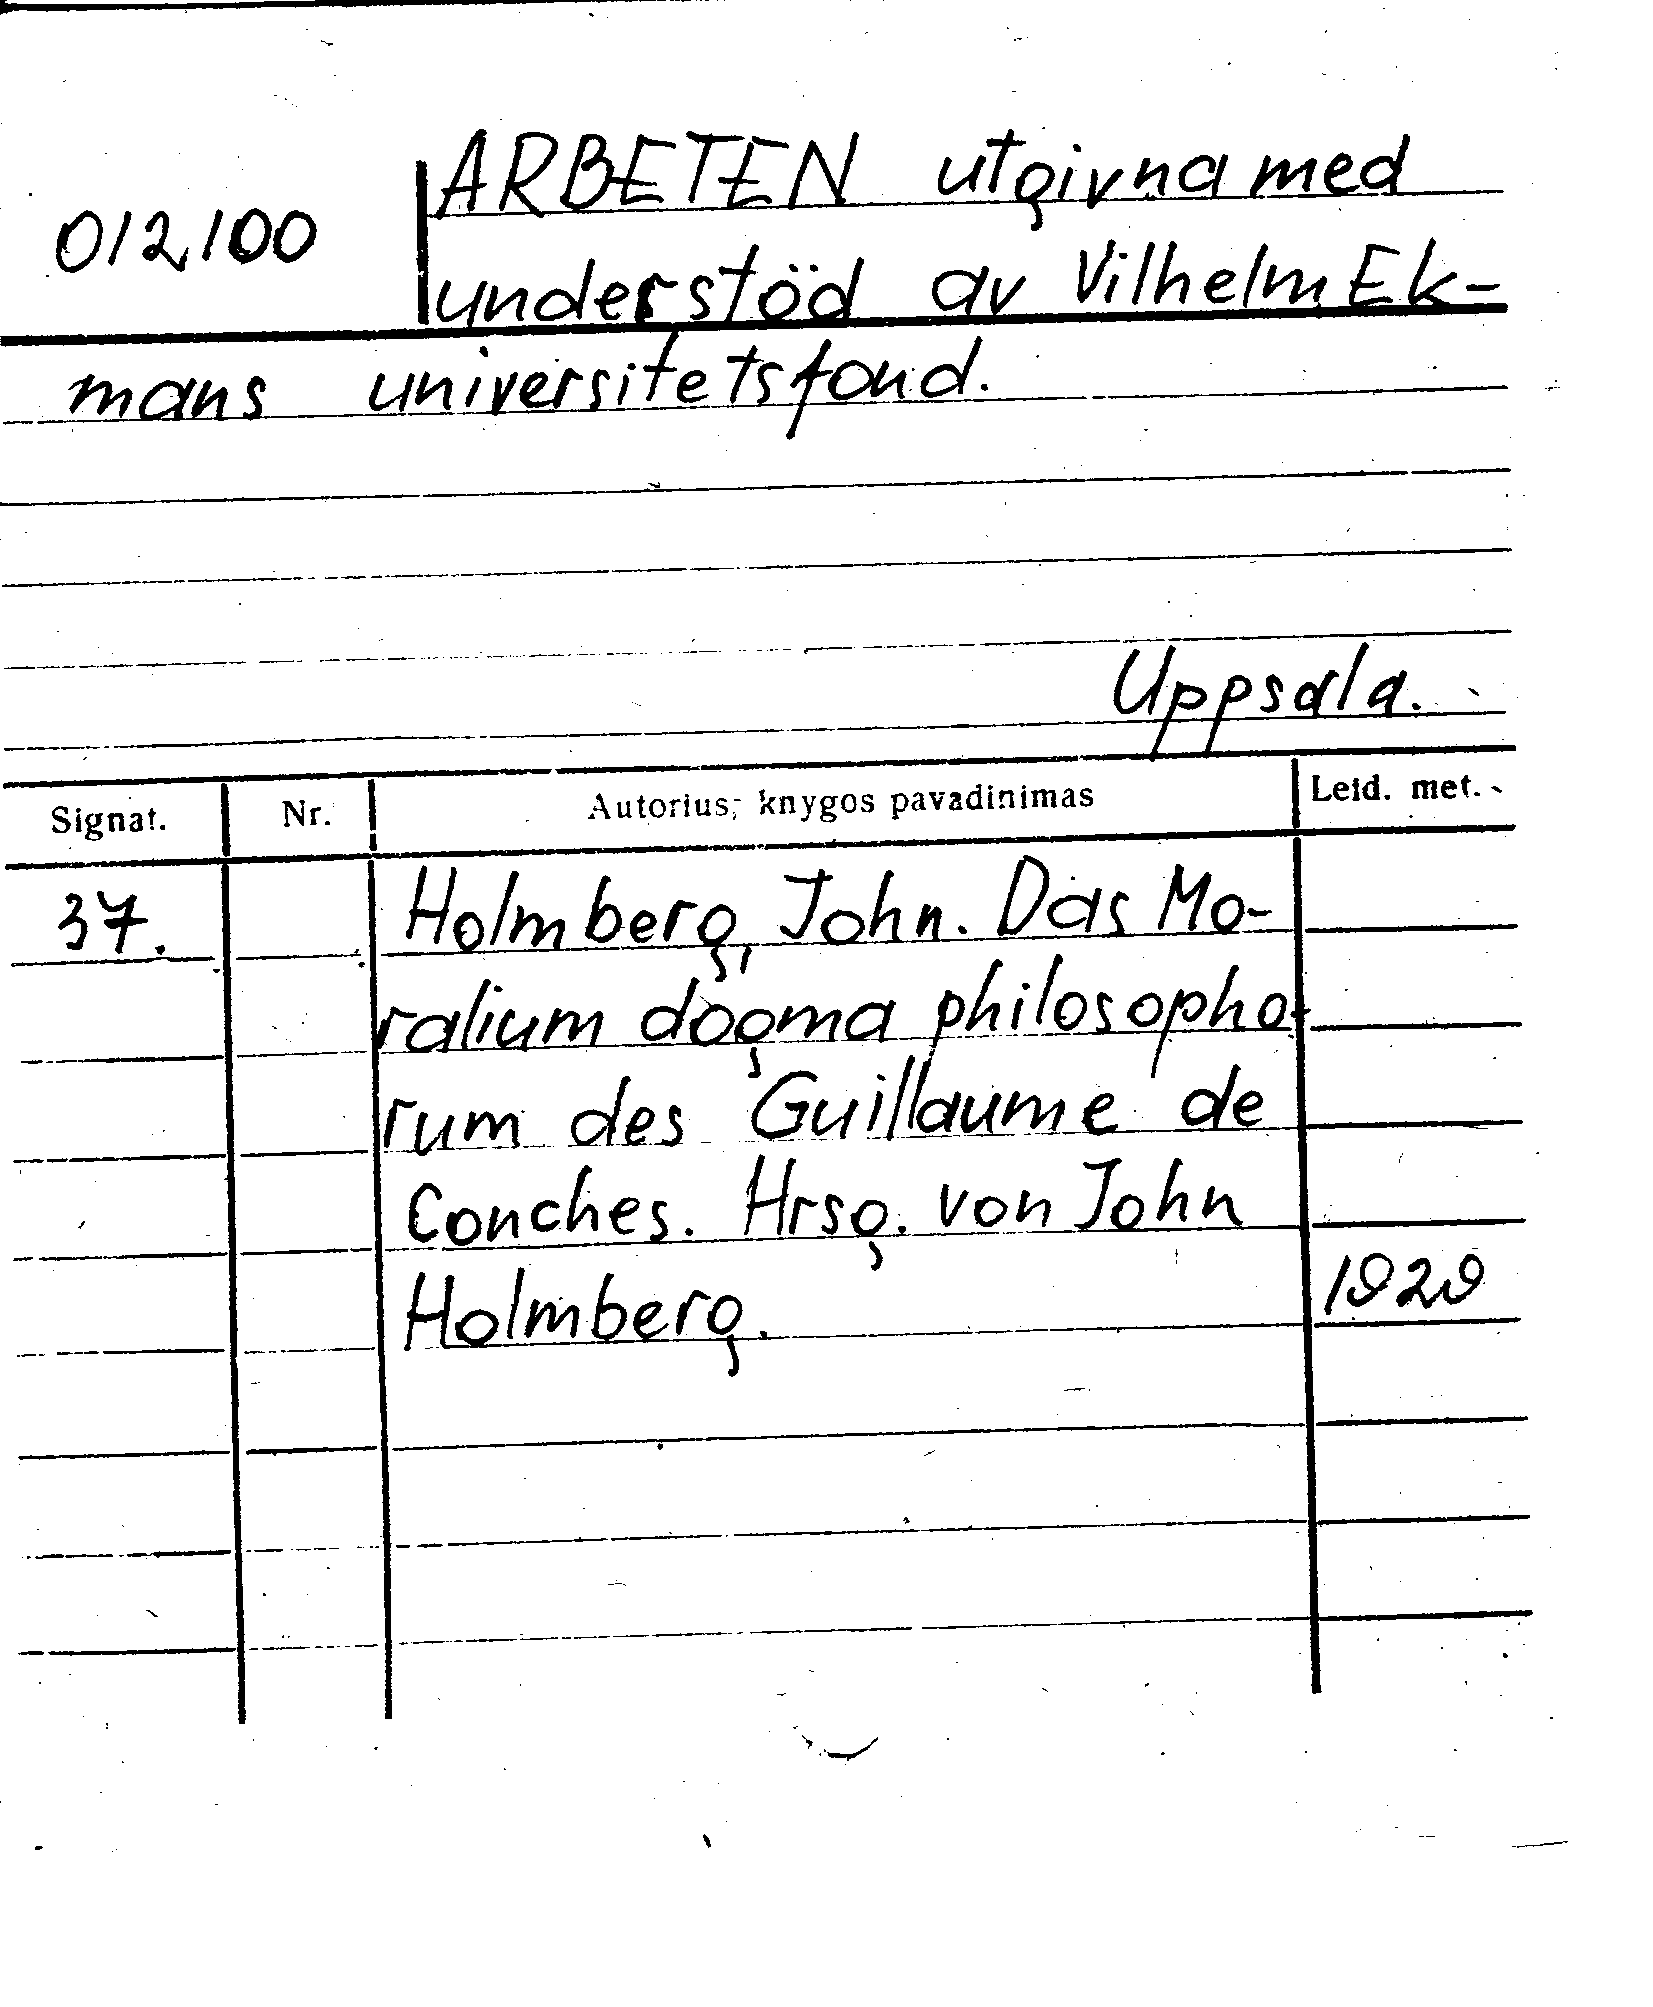 ARBETEN utgivna med
012100
understöd av Vilhelm Ek-
mans universitetsfond.
Uppsala.
Signat. Nr. Autorius, knygos pavadinimas Leid. met.
37. Holmberg, John. Das Mo-
ralium dogma philosopho-
rum des Guillaume de
Conches. Hrsg. von John
Holmberg. 1929